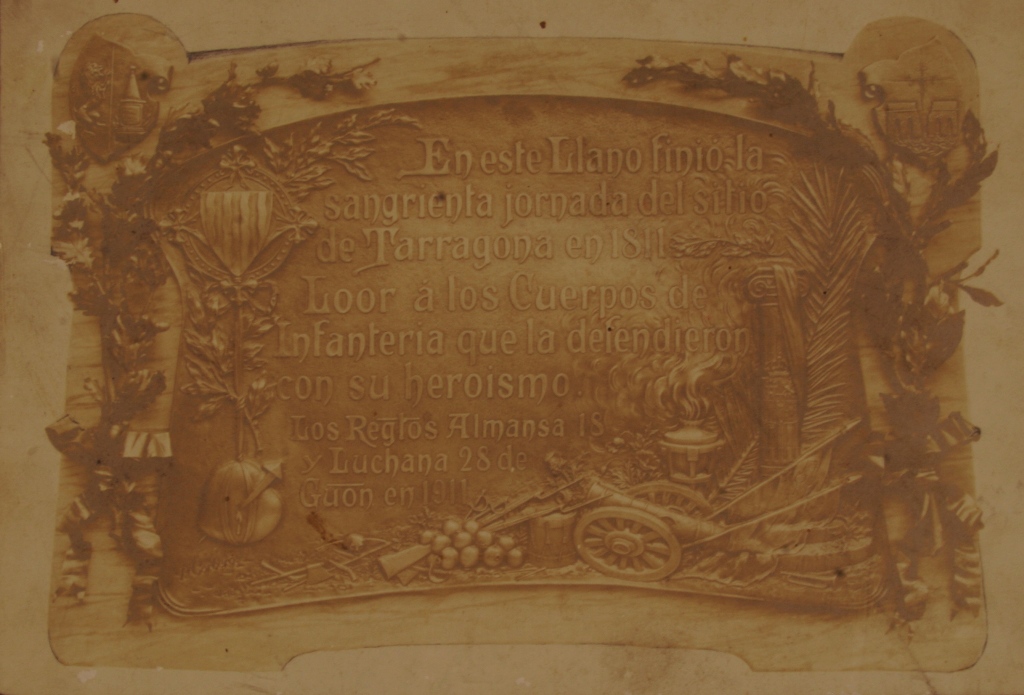 En este Llano finió la
sangrienta jornada del sitio
de Tarragona en 1811.
Loor á los Cuerpos de
Infanteria que la defendieron
con su heroismo.
Los Regtos Almansa 18
y Luchana 28 de
Guón en 1911